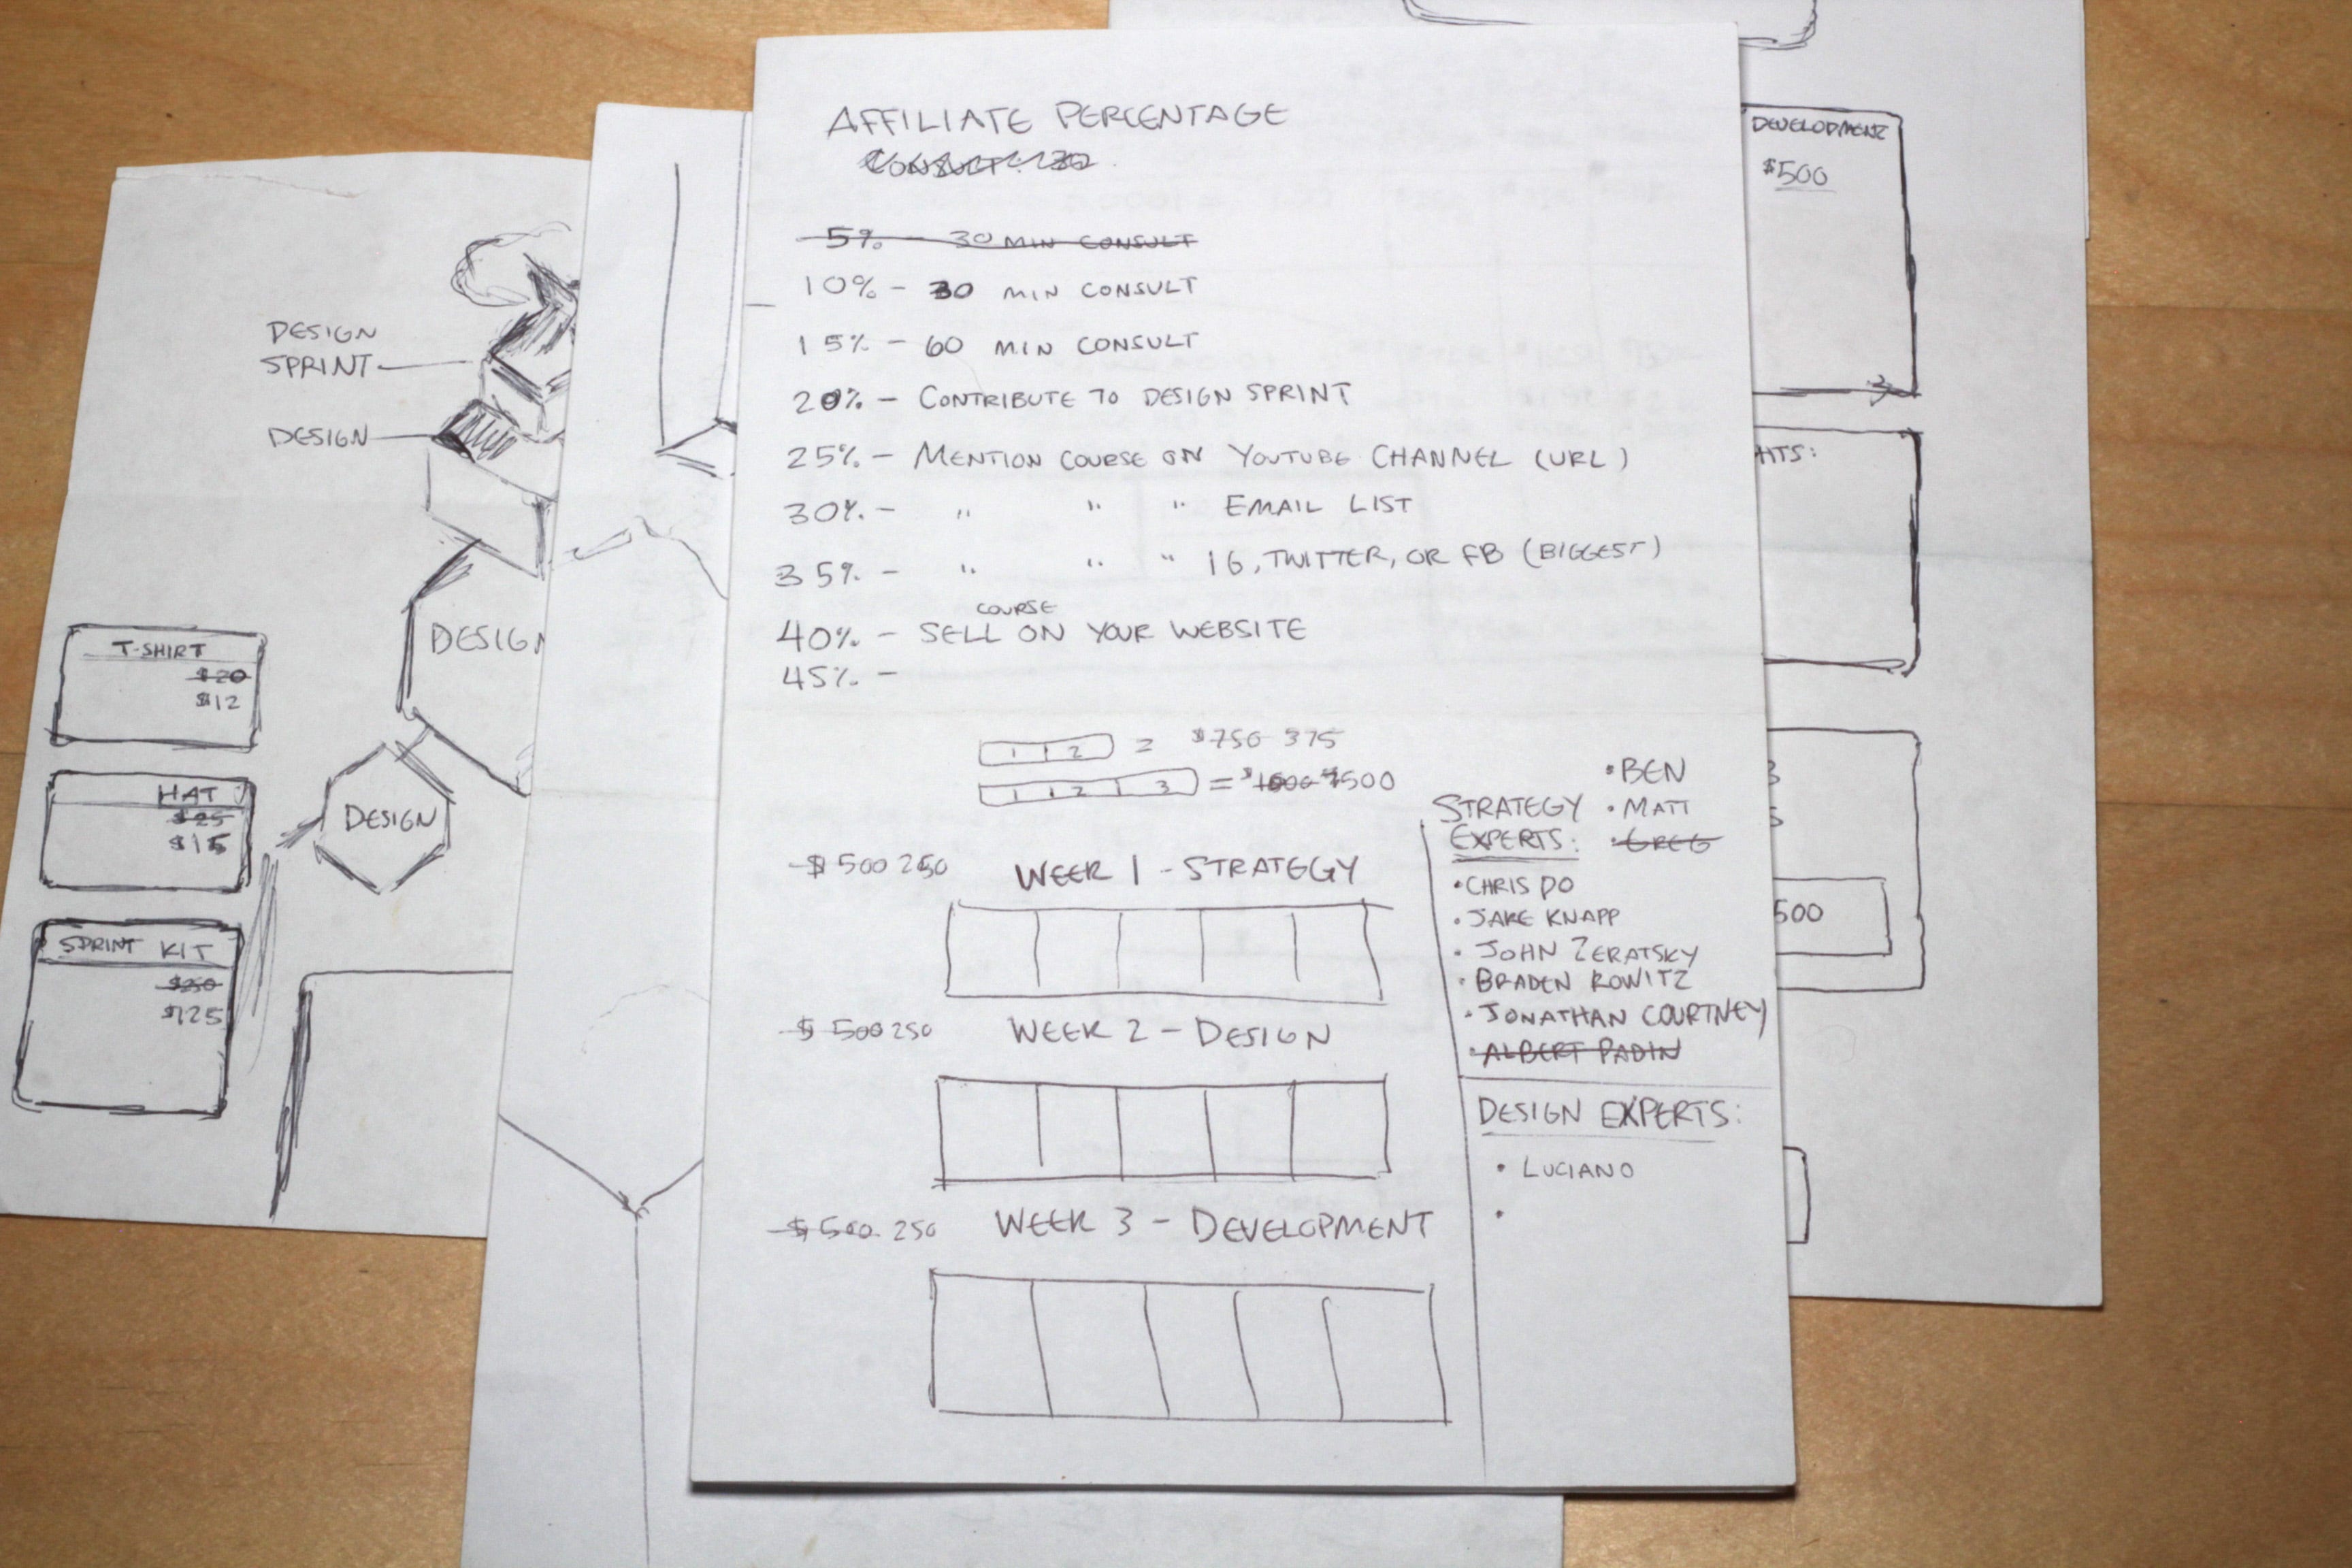 AFFILIATE PERCENTAGE
5% - 30 MIN CONSULT
10% - 30 MIN CONSULT
15% - 60 MIN CONSULT
20% - CONTRIBUTE TO DESIGN SPRINT
25% - MENTION COURSE ON YOUTUBE CHANNEL (URL)
30% - " " " EMAIL LIST
35% - " " " IG, TWITTER, OR FB (BIGGEST)
COURSE
40% - SELL ON YOUR WEBSITE
45% -
1 2 = $750 375
1 2 3 = 500
$500 250 WEEK 1 - STRATEGY
$500 250 WEEK 2 - DESIGN
$500 250 WEEK 3 - DEVELOPMENT
• BEN
STRATEGY • MATT
EXPERTS: • GREG
• CHRIS DO
• JAKE KNAPP
• JOHN ZERATSKY
• BRADEN KOWITZ
• JONATHAN COURTNEY
• ALBERT PADIN
DESIGN EXPERTS:
• LUCIANO
•
DESIGN
SPRINT
DESIGN
DESIGN
DESIGN
T-SHIRT
$20
$12
HAT
$25
$15
SPRINT KIT
$250
$125
DEVELOPMENT
$500
HTS:
500